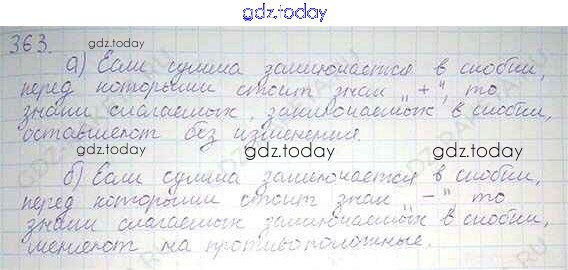 gdz.today
363. gdz.today
а) Если сумма заключается в скобки,
перед которыми стоит знак „+“, то
знаки слагаемых, заключаемых в скобки,
оставляют без изменения.
gdz.today gdz.today
б) Если сумма заключается в скобки,
перед которыми стоит знак „−“, то
знаки слагаемых заключаемых в скобки,
меняют на противоположные.
gdz.today gdz.today